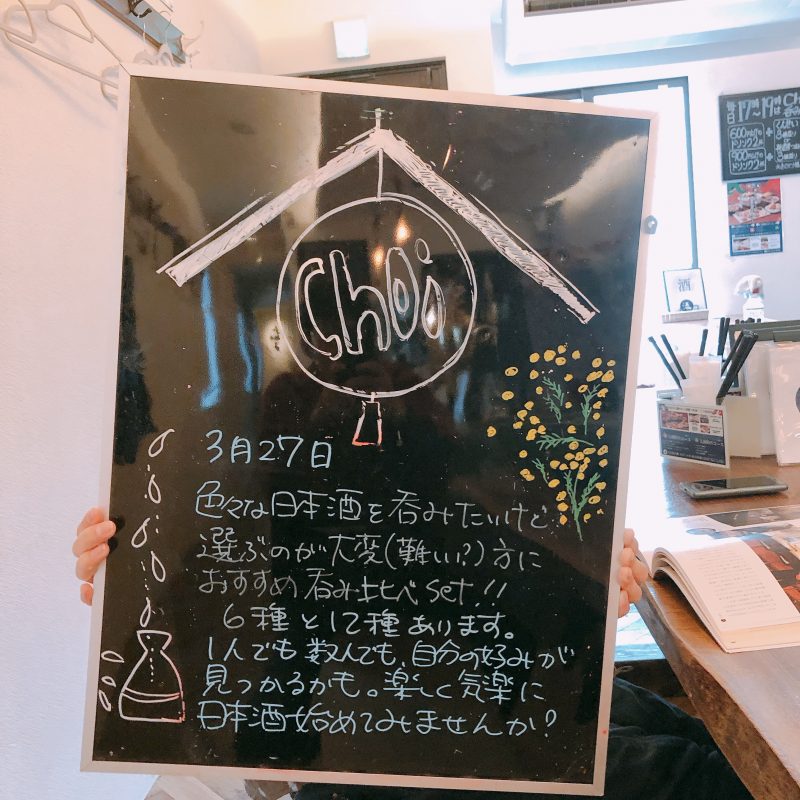 Choi
3月27日
色々な日本酒を呑みたいけど
選ぶのが大変(難しい?)方に
おすすめ呑み比べset!!
6種と12種あります。
1人でも数人でも、自分の好みが
見つかるかも。楽しく気楽に
日本酒始めてみませんか?
毎日17時〜19時
酒